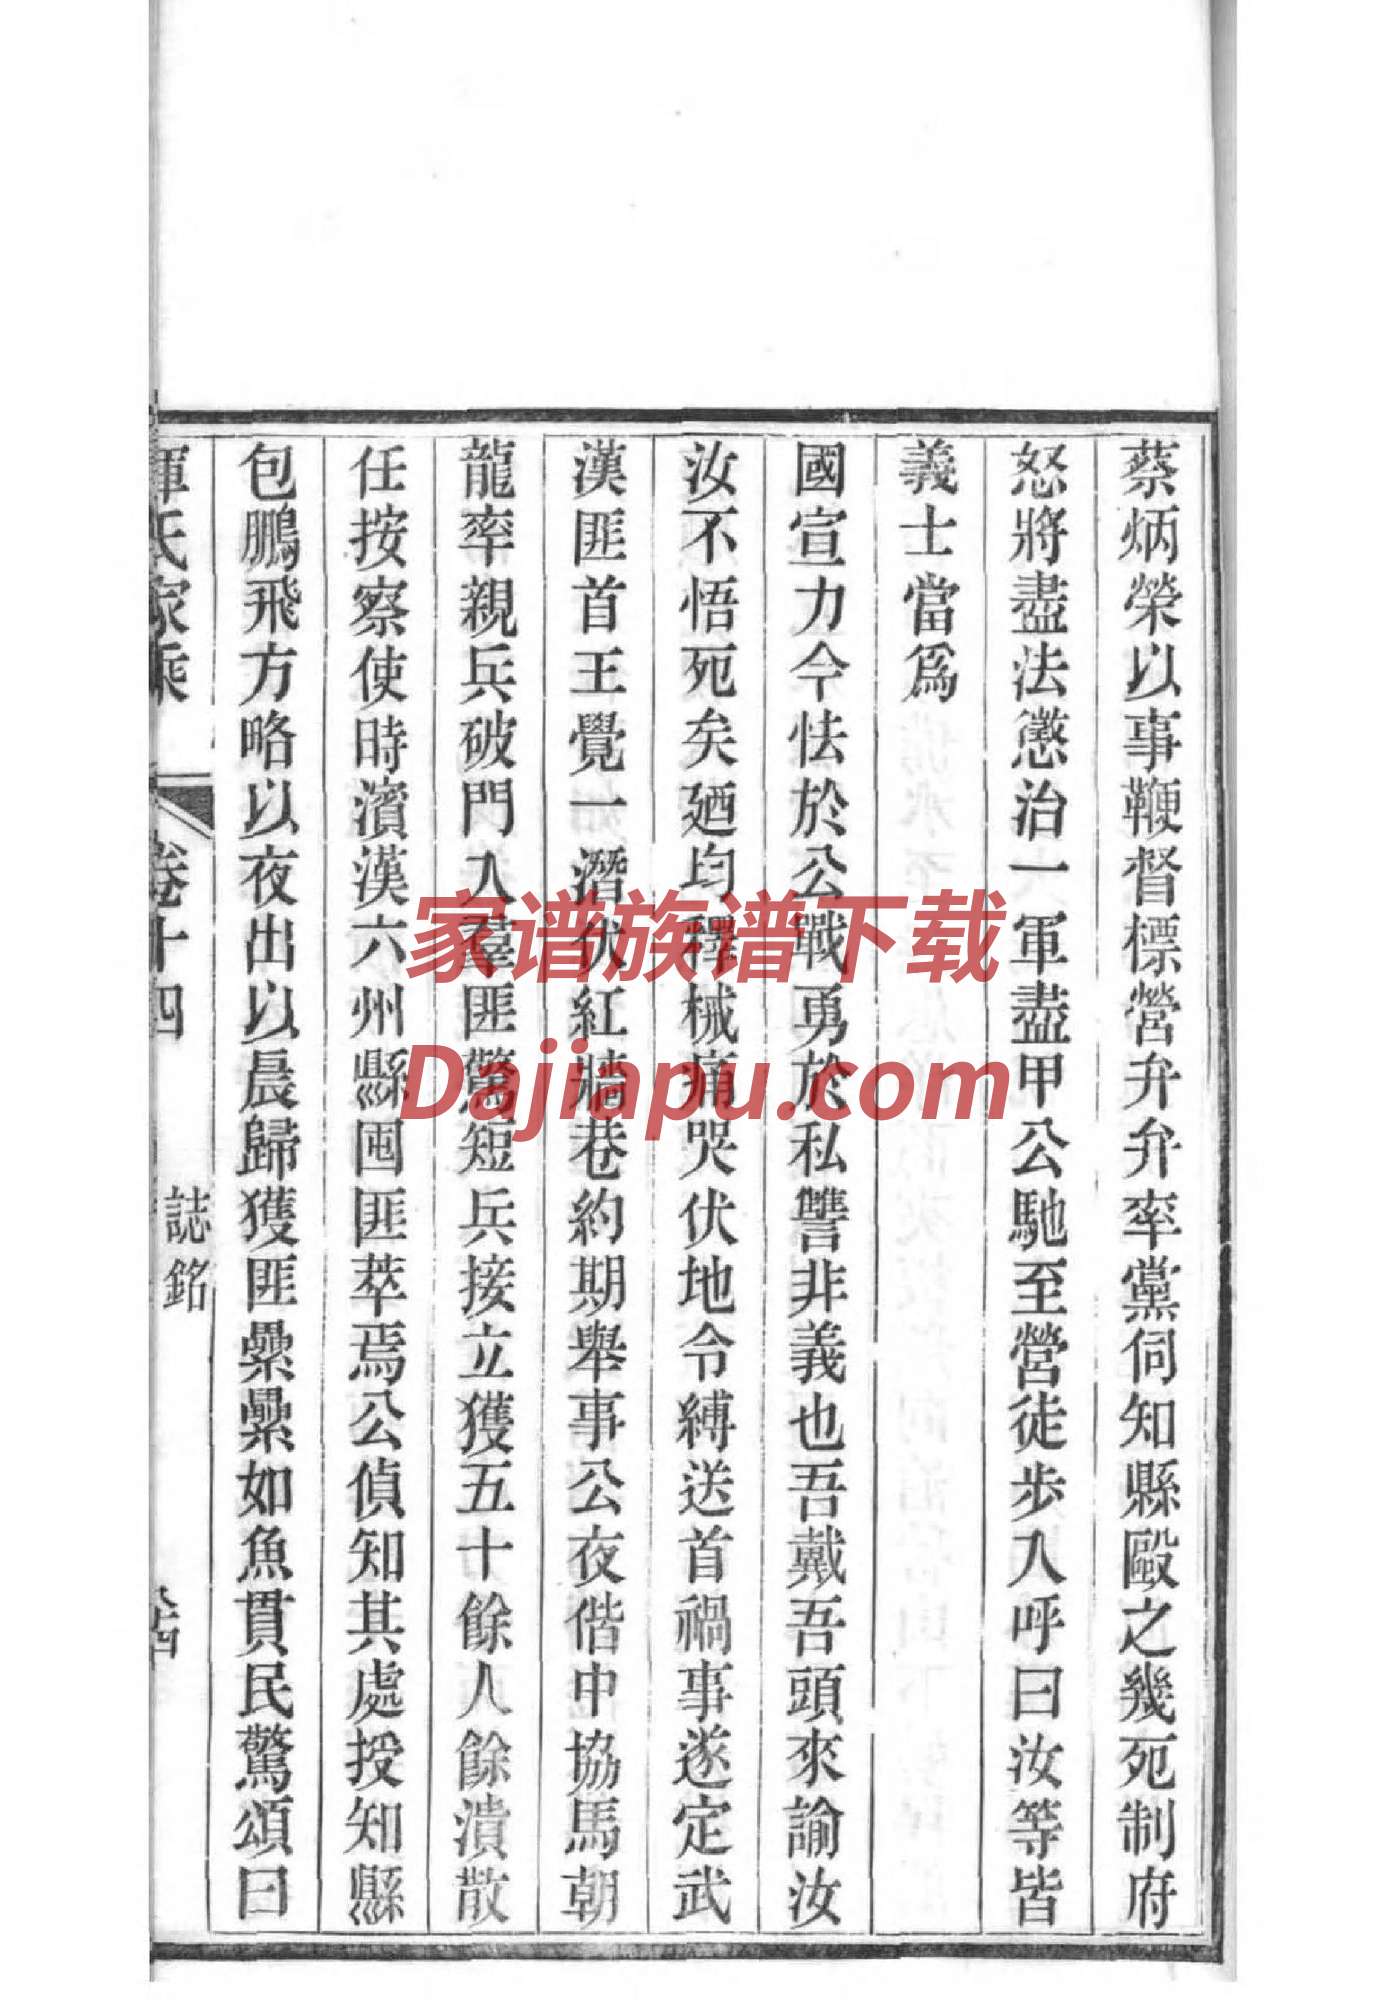 蔡炳榮以事鞭督標營弁弁率黨伺知縣毆之幾死制府
怒將盡法懲治一軍盡甲公馳至營徒步入呼曰汝等皆
義士當爲
國宣力今怯於公戰勇於私讐非義也吾戴吾頭來諭汝
汝不悟死矣廼均釋械痛哭伏地令縛送首禍事遂定武
漢匪首王覺一潛伏紅牆巷約期舉事公夜偕中協馬朝
龍率親兵破門入羣匪驚短兵接立獲五十餘人餘潰散
任按察使時濱漢六州縣囤匪萃焉公偵知其處授知縣
包鵬飛方略以夜出以晨歸獲匪纍纍如魚貫民驚頌曰
惲氏家乘 卷十四 誌銘
家谱族谱下载
Dajiapu.com